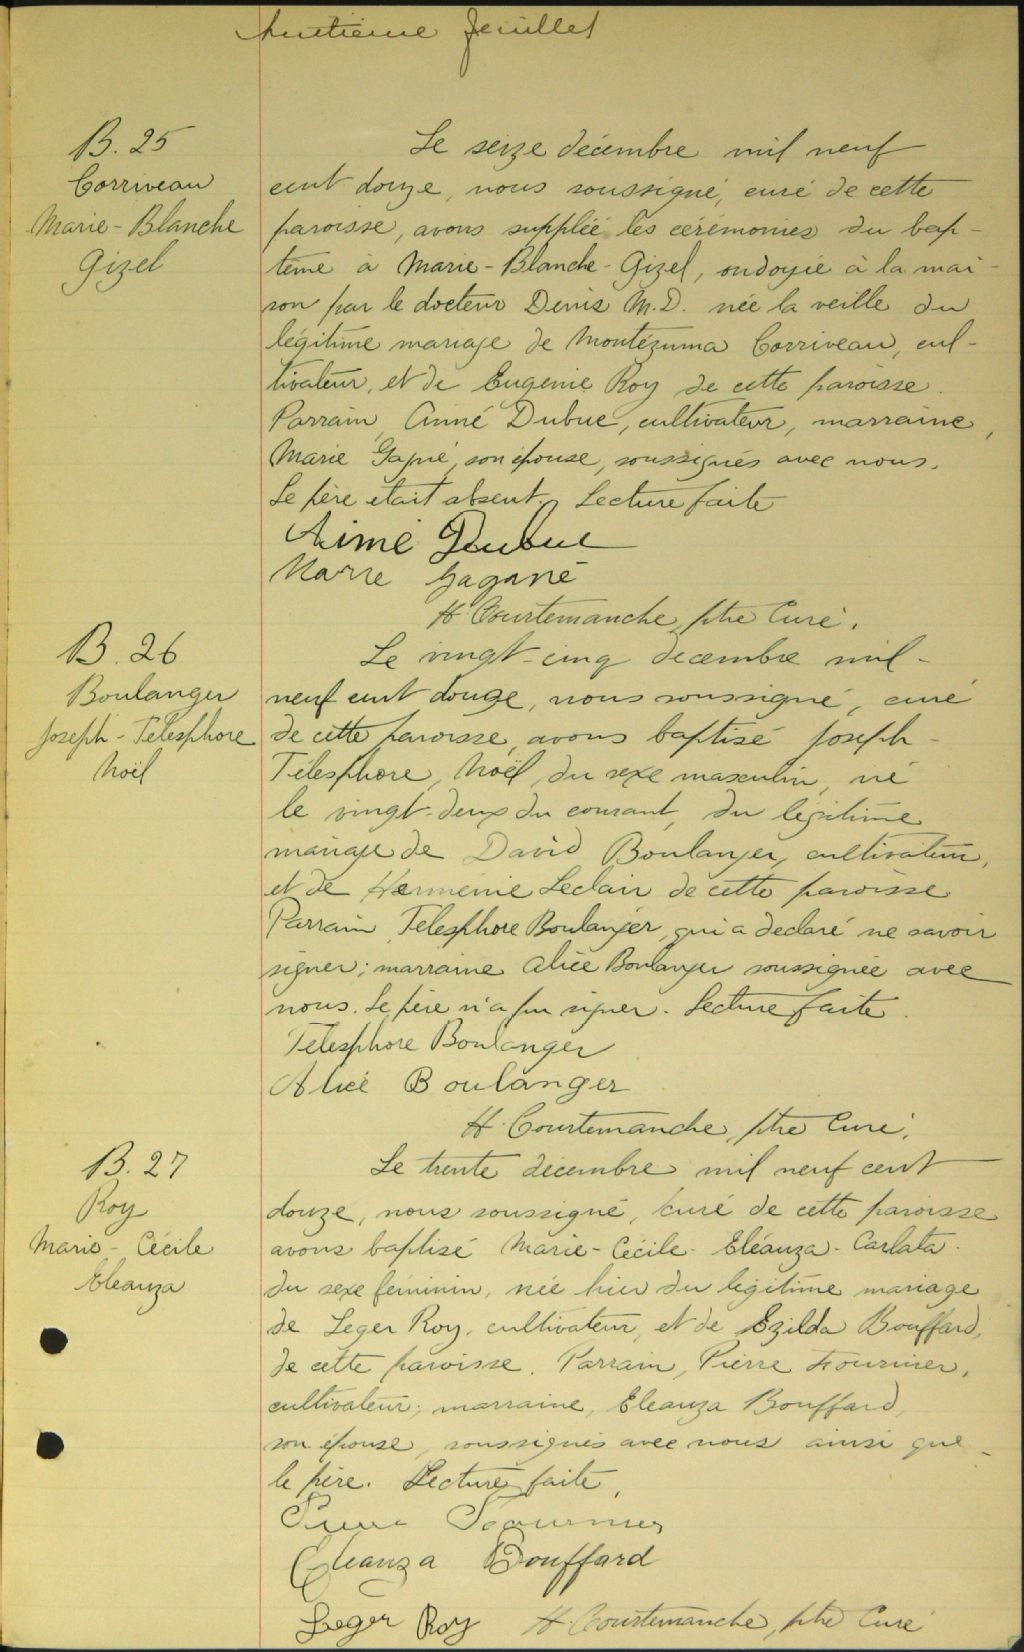 huitième feuillet
B. 25
Corriveau
Marie-Blanche
Gizel
Le seize décembre mil neuf
cent douze, nous soussigné, curé de cette
paroisse, avons supplée les cérémonies du bap-
tême à Marie-Blanche-Gizel, ondoyée à la mai-
son par le docteur Denis M.D. née la veille du
légitime mariage de Montézuma Corriveau, cul-
tivateur, et de Eugénie Roy de cette paroisse.
Parrain, Aimé Dubuc, cultivateur, marraine,
Marie Gagné, son épouse, soussignés avec nous.
Le père était absent. Lecture faite
Aimé Dubuc
Marie Gagané
H Courtemanche, ptre Curé.
B. 26
Boulanger
Joseph-Télesphore
Noël
Le vingt-cinq décembre mil-
neuf cent douze, nous soussigné, curé
de cette paroisse, avons baptisé Joseph-
Télesphore, Noël, du sexe masculin, né
le vingt-deux du courant, du légitime
mariage de David Boulanger, cultivateur,
et de Herménie Leclair de cette paroisse
Parrain, Télesphore Boulanger, qui a declaré ne savoir
signer; marraine Alice Boulanger soussignée avec
nous. Le père n'a pu signer. Lecture faite.
Telesphore Boulanger
Alice Boulanger
H. Courtemanche, ptre Curé.
B. 27
Roy
Marie-Cécile
Eleauza
Le trente décembre mil neuf cent
douze, nous soussigné, curé de cette paroisse
avons baptisé Marie-Cécile-Eléauza-Carlata-
du sexe féminin, née hier du légitime mariage
de Leger Roy, cultivateur, et de Ezilda Bouffard,
de cette paroisse. Parrain, Pierre Fournier,
cultivateur; marraine, Eleauza Bouffard,
son épouse, soussignés avec nous ainsi que
le père. Lecture faite.
Pierre Fournier
Eleauza Bouffard
Leger Roy H. Courtemanche, ptre Curé